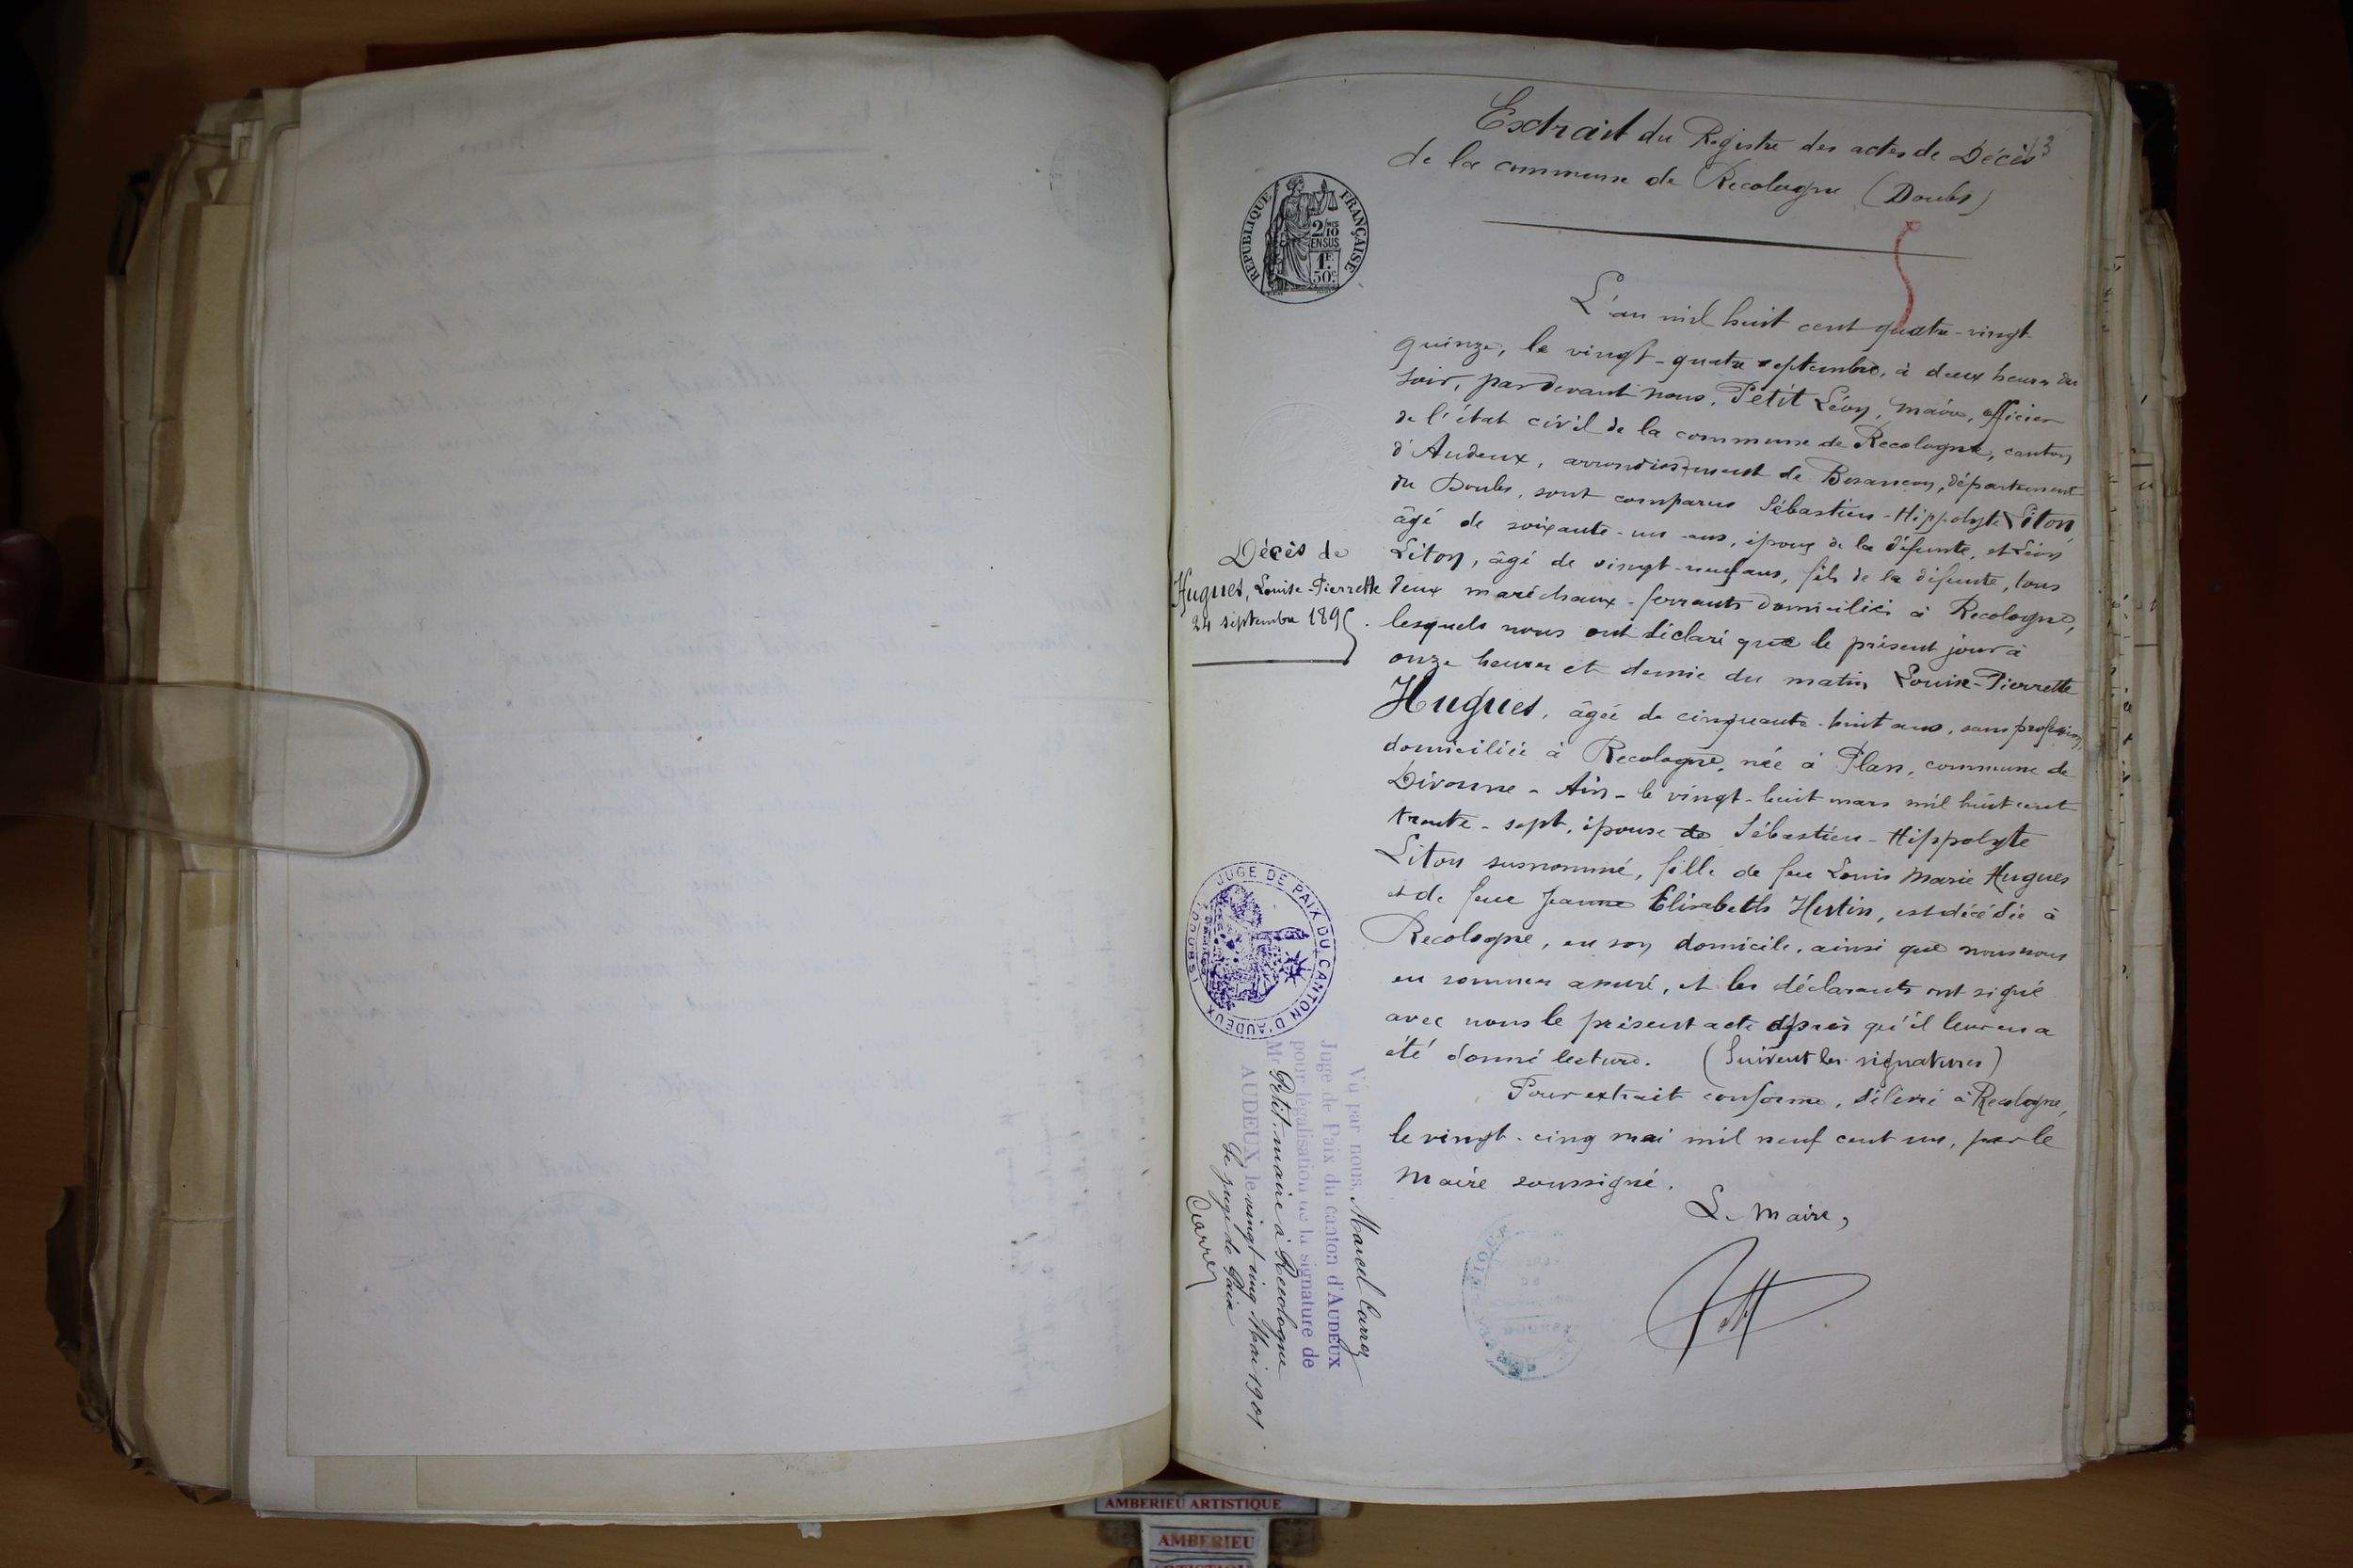 Extrait du Registre des actes de Décès 13
de la commune de Recologne (Doubs)
REPUBLIQUE FRANÇAISE
2/10
EN SUS
1F.
50c.
L'an mil huit cent quatre-vingt
quinze, le vingt-quatre septembre, à deux heures du
soir, pardevant nous, Petit Léon, maire, officier
de l'état civil de la commune de Recologne, canton
d'Audeux, arrondissement de Besançon, département
du Doubs, sont comparus Sébastien-Hippolyte Liton
âgé de soixante-un ans, époux de la défunte, et Léon
Liton, âgé de vingt-neuf ans, fils de la défunte, tous
deux maréchaux-ferrants domiciliés à Recologne,
lesquels nous ont déclaré que le présent jour à
onze heures et demie du matin Louise-Pierrette
Hugues, âgée de cinquante-huit ans, sans profession,
domiciliée à Recologne, née à Plan, commune de
Divonne - Ain - le vingt-huit mars mil huit cent
trente-sept, épouse de Sébastien-Hippolyte
Liton susnommé, fille de feu Louis Marie Hugues
et de feue Jeanne Elisabeth Hertin, est décédée à
Recologne, en son domicile, ainsi que nous nous
en sommes assuré, et les déclarants ont signé
avec nous le présent acte après qu'il leur en a
été donné lecture. (Suivent les signatures)
Pour extrait conforme, délivré à Recologne,
le vingt-cinq mai mil neuf cent un, par le
Maire soussigné.
Le Maire,
Petit
Décès de
Hugues, Louise-Pierrette
24 septembre 1895.
JUGE DE PAIX DU CANTON D'AUDEUX (DOUBS)
Vu par nous, Marcel Carrey
Juge de Paix du canton d'AUDEUX
pour légalisation de la signature de
Mr Petit, maire à Recologne
AUDEUX, le vingt-cinq Mai 1901.
Le juge de Paix
Carrey
AMBERIEU ARTISTIQUE
AMBERIEU
ARTISTIQUE